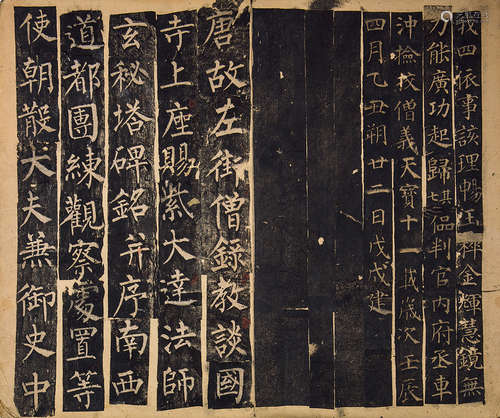 我四依事該理暢玉粹金輝慧鏡無
力能廣功起歸其品判官內府丞車
沖檢校僧義天寶十一載歲次壬辰
四月乙丑朔廿二日戊戌建
唐故左街僧錄教談國
寺上座賜紫大達法師
玄秘塔碑銘并序南西
道都團練觀察處置等
使朝散大夫兼御史中